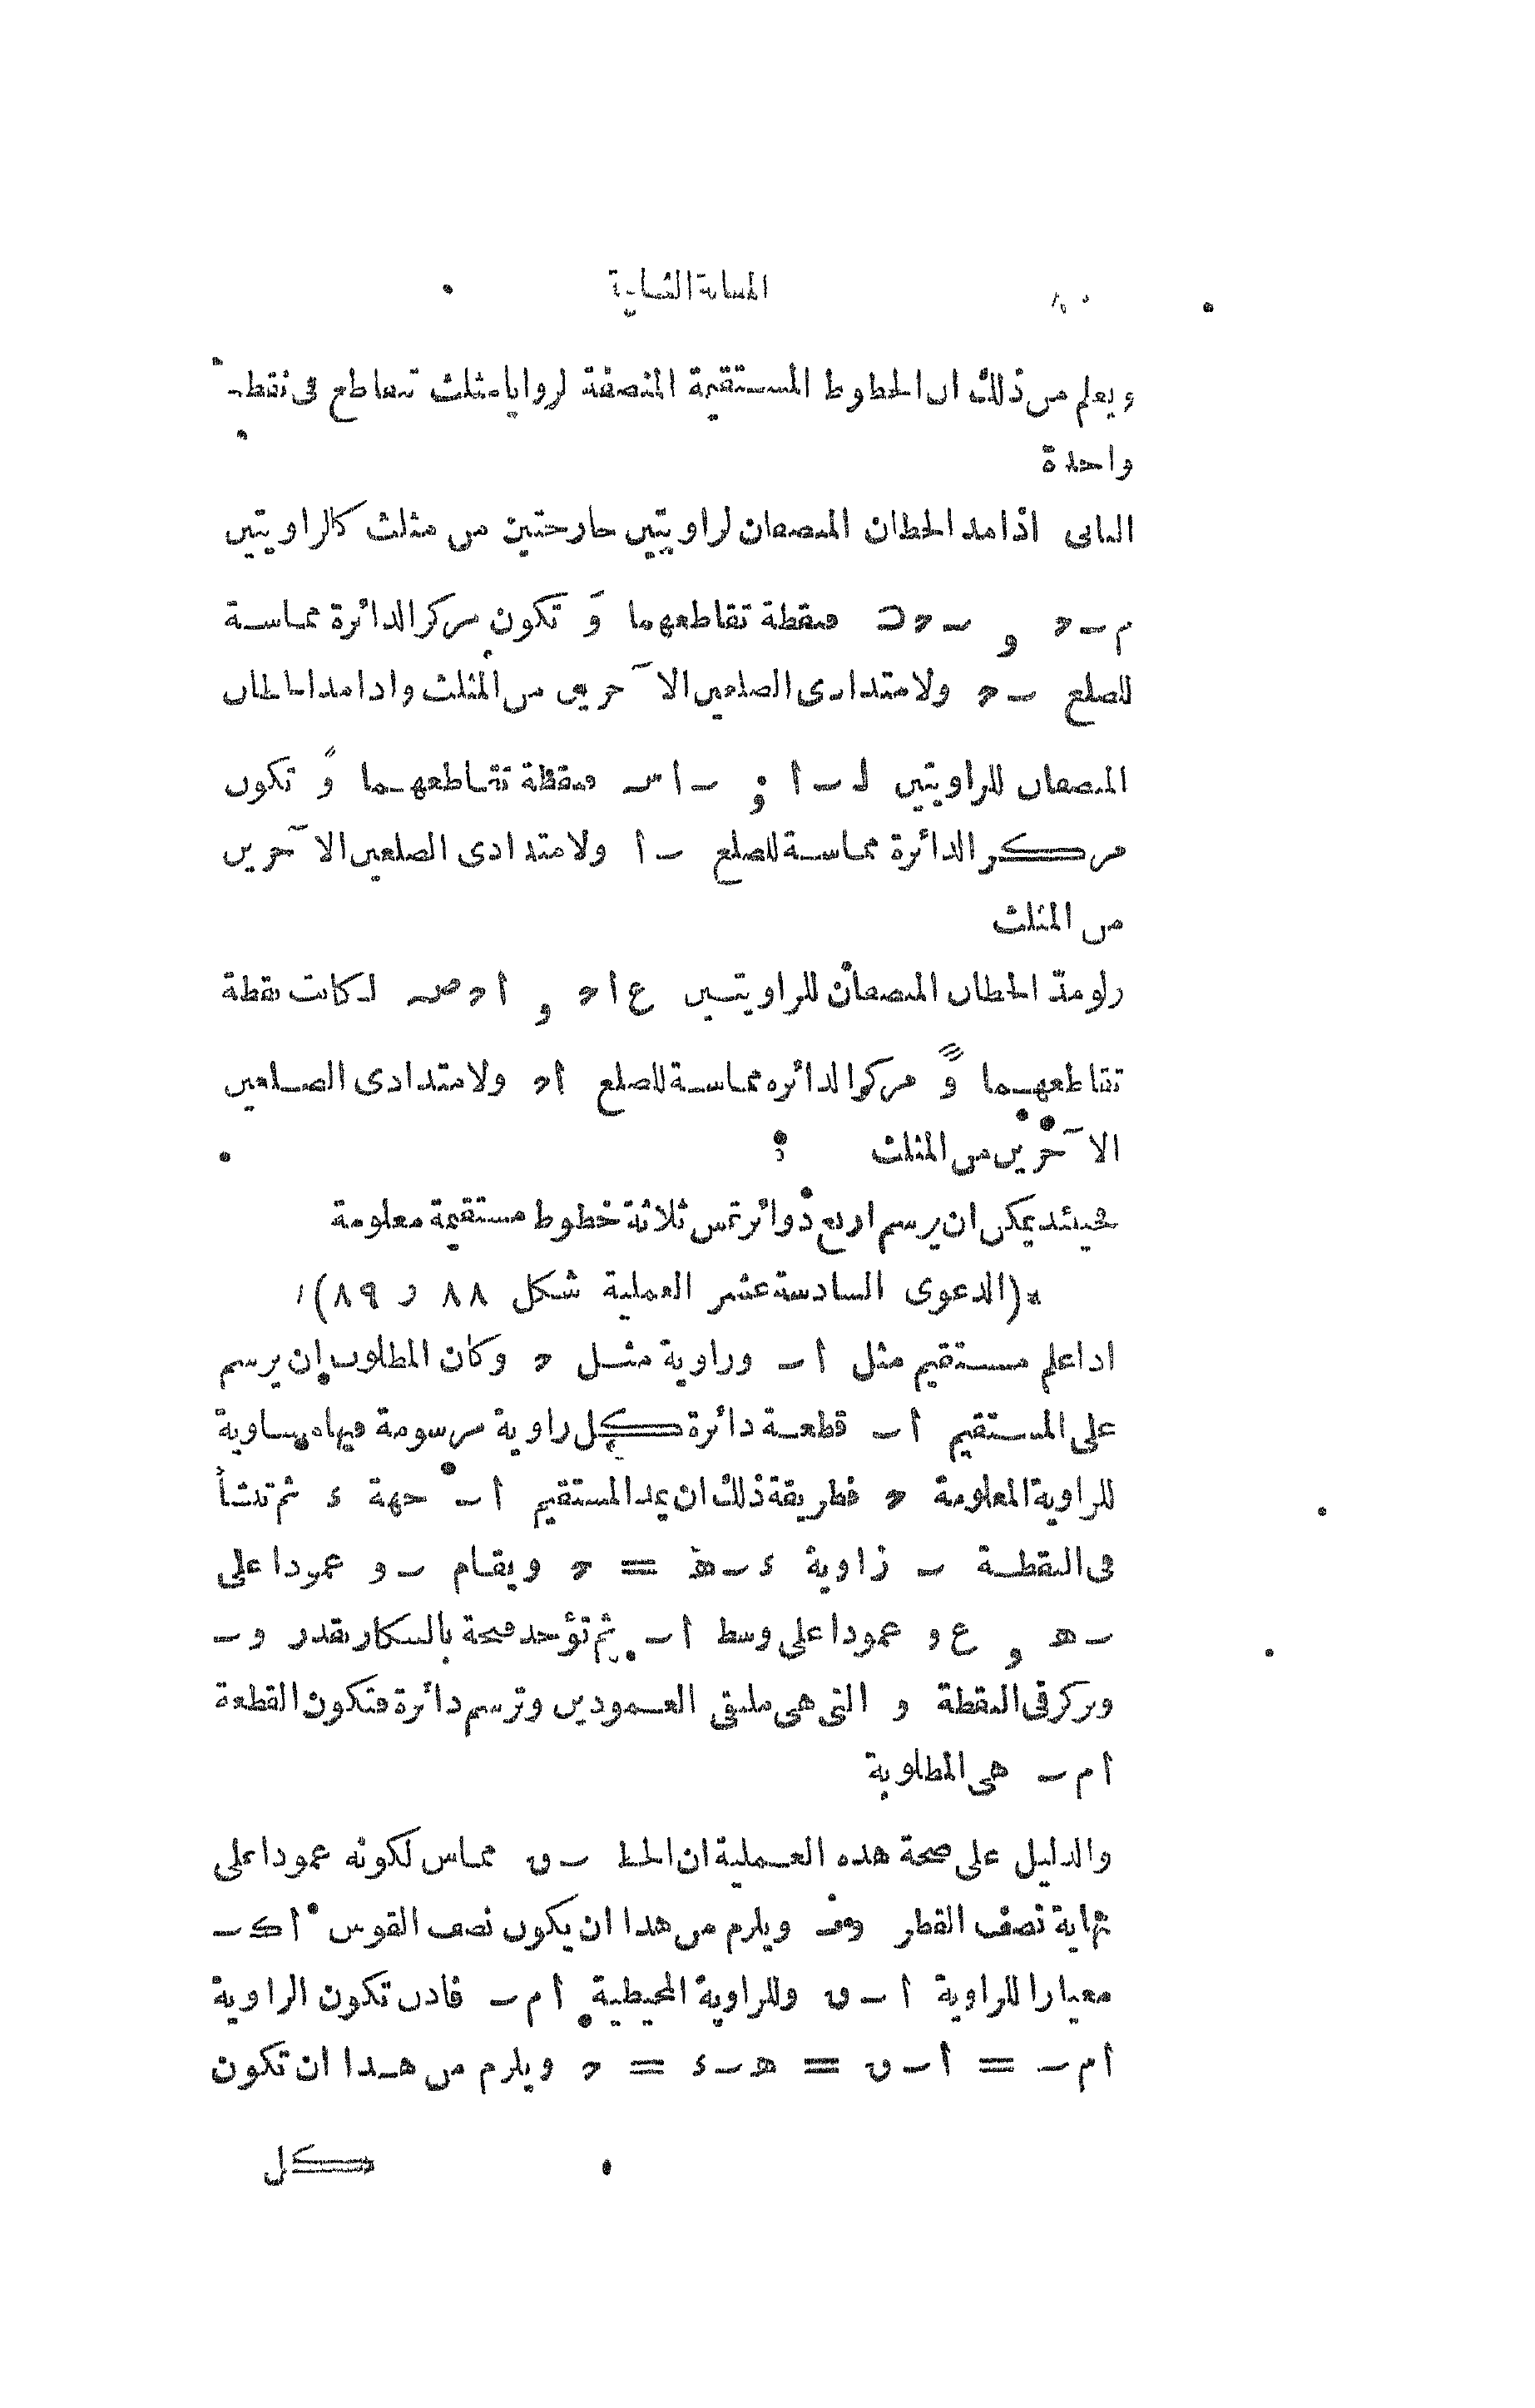 المقالة الثانية
ويعلم من ذلك ان الخطوط المستقيمة المنصفة لزوايا مثلث تتقاطع فى نقطة
واحدة
الثانى اذا مد الخطان المنصفان لزاويتين خارجتين من مثلث كالزاويتين
م ب ح و ب ح ن فنقطة تقاطعهما وَ تكون مركز الدائرة مماسة
للضلع ب ح ولامتدادى الضلعين الآخرين من المثلث واذا مد الخطان
المنصفان للزاويتين ل ب أ و ب أ س فنقطة تقاطعهما وً تكون
مركز الدائرة مماسة للضلع ب أ ولامتدادى الضلعين الآخرين
من المثلث
ولو مدّ الخطان المنصفان للزاويتين ع أ ح و أ ح ص لكانت نقطة
تقاطعهما و مركز الدائرة مماسة للضلع أ ح ولامتدادى الضلعين
الآخرين من المثلث
فحينئذ يمكن ان يرسم اربع دوائر تمس ثلاثة خطوط مستقيمة معلومة
*(الدعوى السادسة عشر العملية شكل ٨٨ و ٨٩)*
اذا علم مستقيم مثل أ ب وزاوية مثل ح وكان المطلوب ان يرسم
على المستقيم أ ب قطعة دائرة كل زاوية مرسومة فيها مساوية
للزاوية المعلومة ح فطريقة ذلك ان يمد المستقيم أ ب جهة ء ثم تنشأ
فى النقطة ب زاوية ء ب ه = ح ويقام ب و عمودا على
ب ه و ع و عمودا على وسط أ ب ثم تؤخذ فتحة بالبيكار بقدر و ب
ويركز فى النقطة و التى هى ملتقى العمودين وترسم دائرة فتكون القطعة
أ م ب هى المطلوبة
والدليل على صحة هذه العملية ان الخط ب ق مماس لكونه عمودا على
نهاية نصف القطر ويلزم من هذا ان يكون نصف القوس أ ك ب
معيارا للزاوية أ ب ق وللزاوية المحيطية أ م ب فاذن تكون الزاوية
أ م ب = أ ب ق = ه ب ء = ح ويلزم من هذا ان تكون
كل